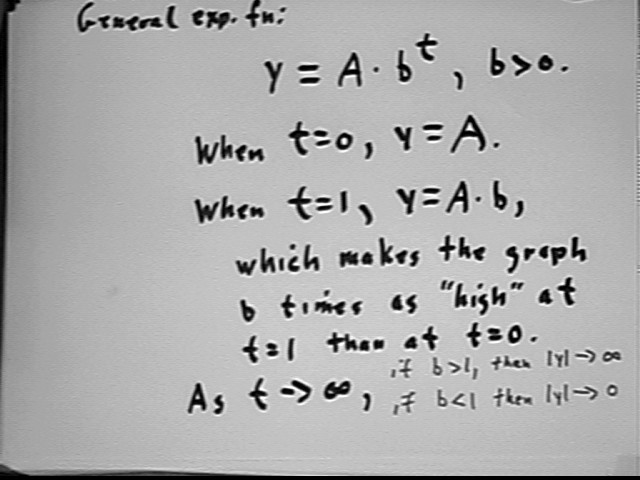 General exp. fn:
y = A · b^t, b>0.
When t=0, y=A.
When t=1, y=A·b,
which makes the graph
b times as "high" at
t=1 than at t=0.
if b>1, then |y|→∞
As t→∞, if b<1 then |y|→0